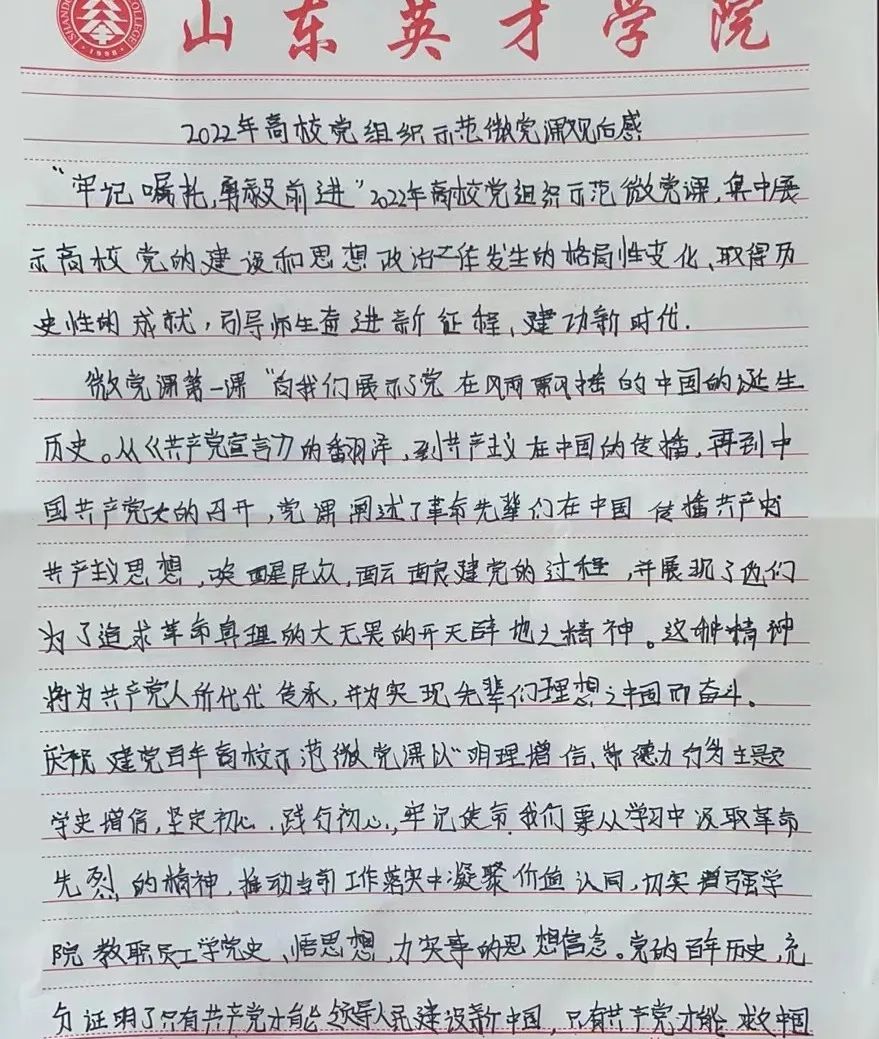 山东英才学院
SHANDONG COLLEGE 1998
2022年高校党组织示范微党课观后感
"牢记嘱托,勇毅前进"2022年高校党组织示范微党课,集中展
示高校党的建设和思想政治工作发生的格局性变化、取得历
史性的成就,引导师生奋进新征程、建功新时代.
微党课第一课"向我们展示了党在风雨飘摇的中国的诞生
历史。从《共产党宣言》的翻译,到共产主义在中国的传播,再到中
国共产党大的召开,党课阐述了革命先辈们在中国传播共产
共产主义思想,唤醒民众,酝酿建党的过程,并展现了他们
为了追求革命真理的大无畏的开天辟地之精神。这种精神
将为共产党人所代代传承,并为实现先辈们理想之中国而奋斗。
庆祝建党百年高校示范微党课以"明理增信、崇德力行为主题
学史增信,坚定初心.践行初心,牢记使命.我们要从学习中汲取革命
先烈的精神,推动当前工作落实中凝聚价值认同,切实增强学
院教职员工学党史、悟思想、力实事的思想信念。党的百年历史,充
分证明了只有共产党才能领导人民建设新中国,只有共产党才能救中国